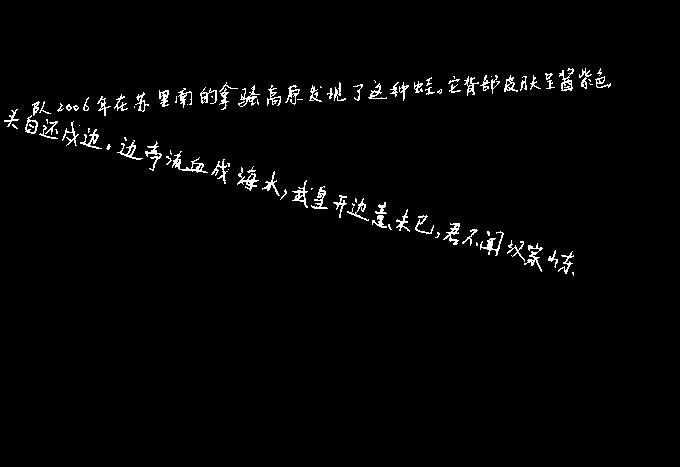 队2006年在苏里南的拿骚高原发现了这种蛙。它背部皮肤呈酱紫色
头白还戍边。边亭流血成海水,武皇开边意未已,君不闻汉家山东